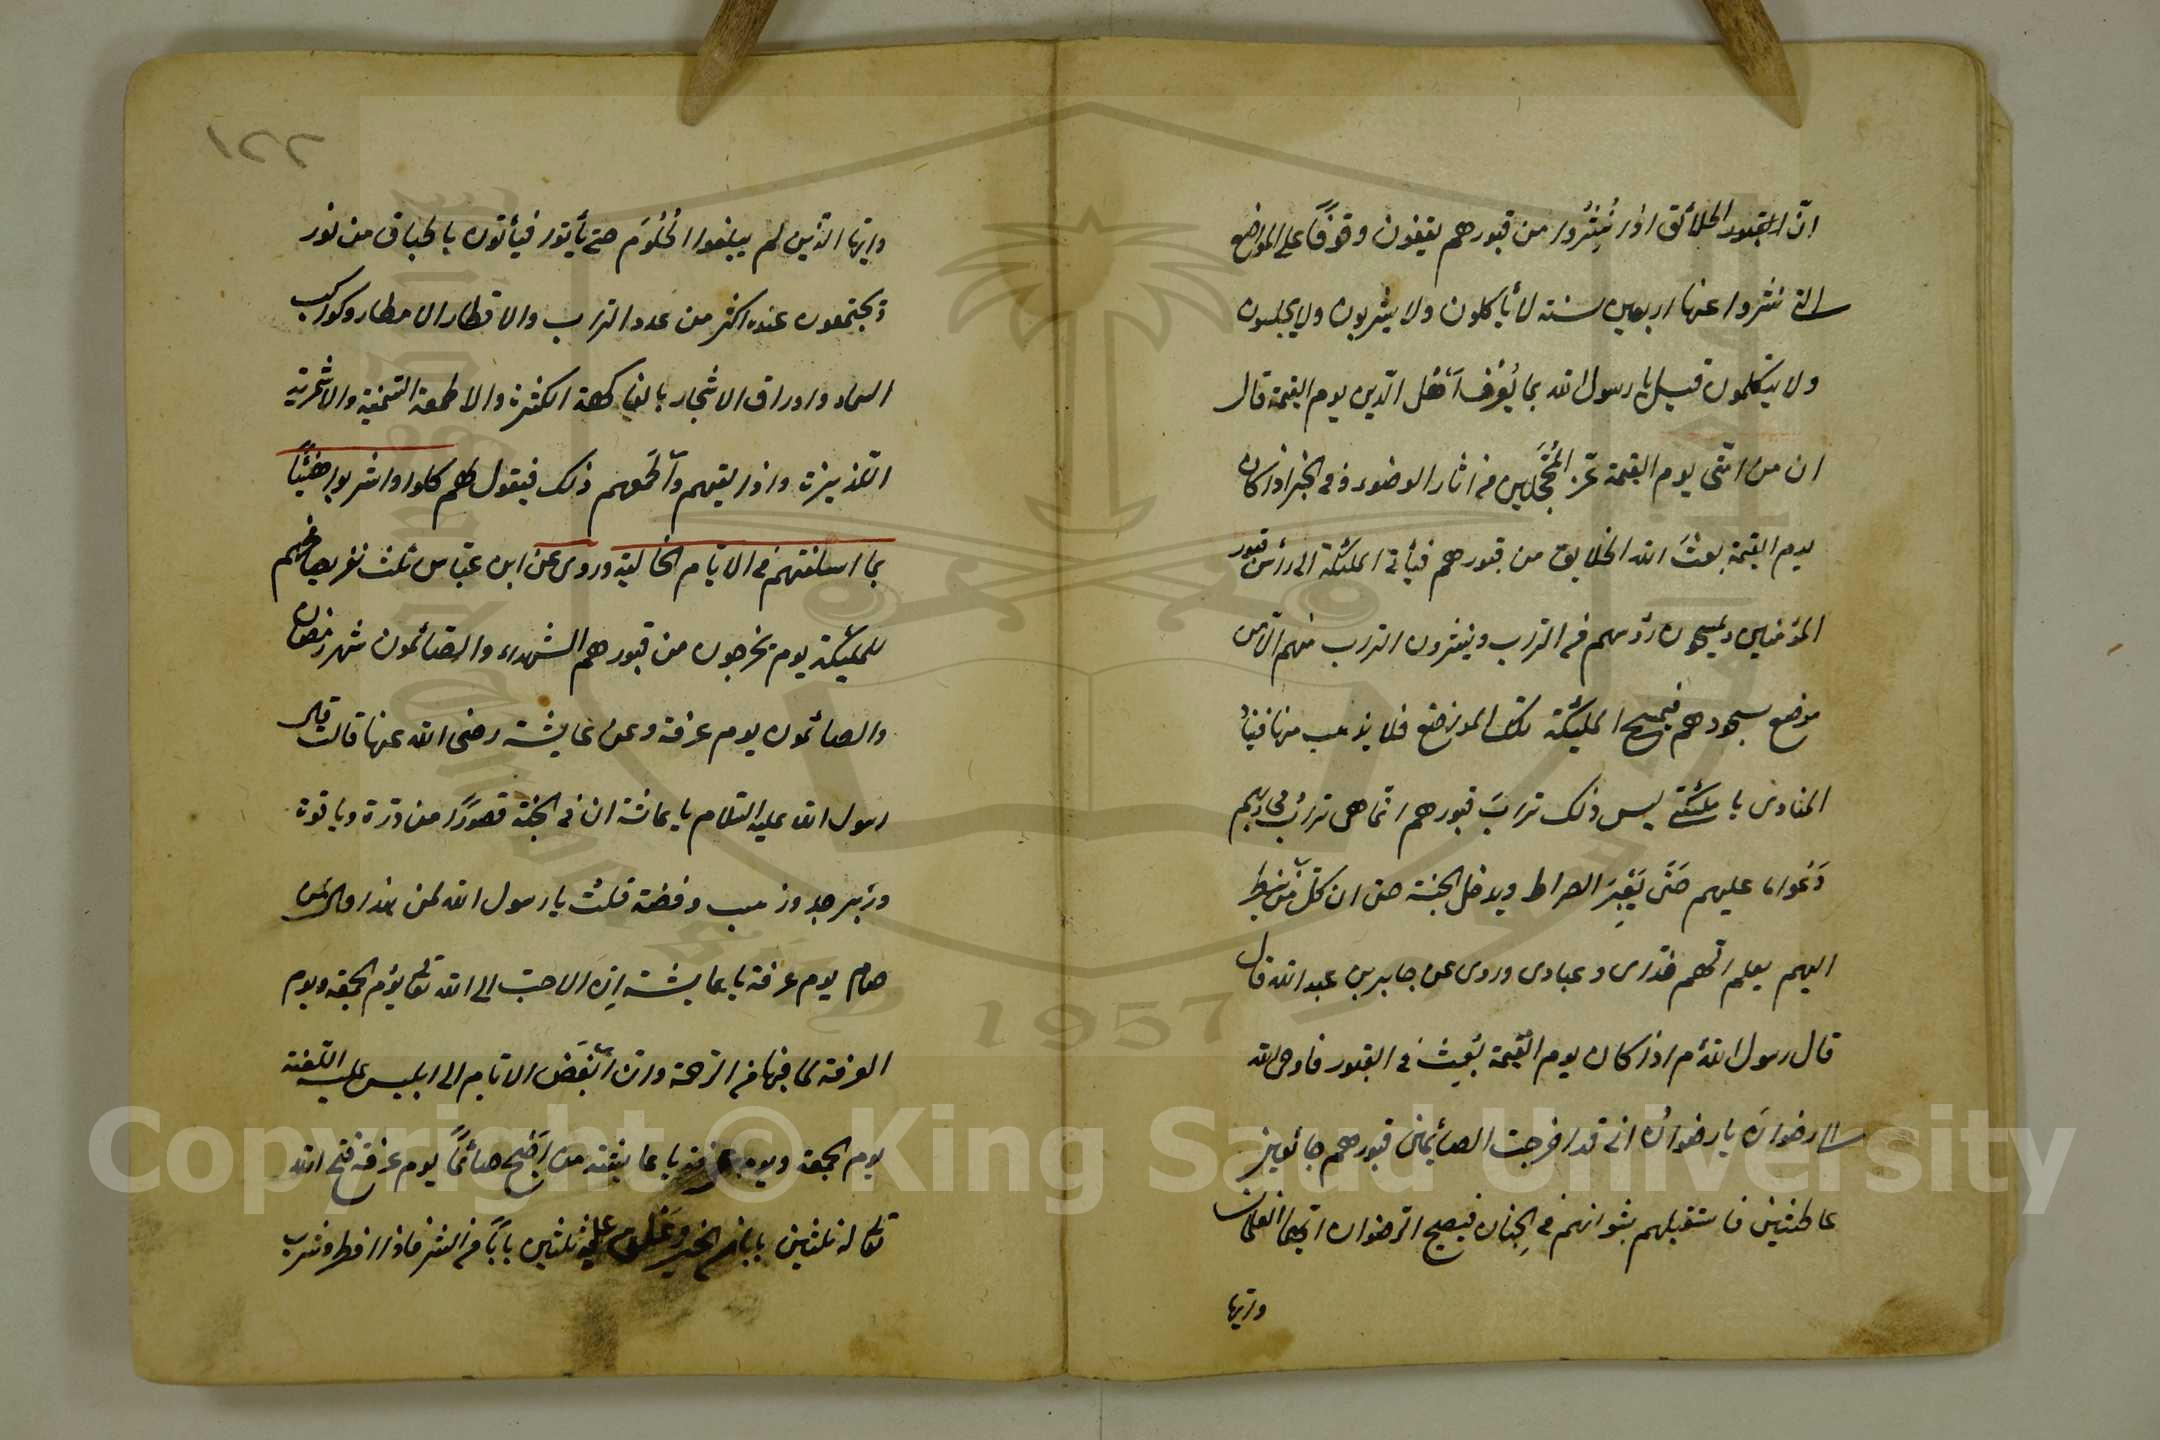 انّ الخلائق اذا نُشِرُوا من قبورهم يقفون وقوفًا على المواضع
التى نشروا عنها اربعين سنة لا ياكلون ولا يشربون ولا يجلسون
ولا يتكلمون قيل يا رسول الله بما يُعْرَف اَهْل الدين يوم القيمة قال
ان من امّتى يوم القيمة غرّ المُحَجَّلين من اثار الوضوء وفى الخبر اذا كان
يوم القيمة بعثَ الله الخلايق من قبورهم فيأتى الملئكة الى رؤس قبور
المؤمنين ويمسحون رؤسهم من التراب وينثرون التراب منهم الّا من
موضع سجودهم فيمسح الملئكة تلك الموضع فلا يذهب منها فينادِ
المنادى يا ملئكتى ليس ذلك ترابَ قبورهم انّما هى ترابُ محاربهم
دَعُوا ما عليهم حَتّى يَعْبِرَ الصراط ويدخل الجنة حتى ان كلّ من ينظر
اليهم يعلم انّهم خدّامى وعبادى وروى عن جابر بن عبد الله قال
قال رسول اللهؐ م اذا كان يوم القيمة يُبعِثُ فى القبور فاوحى الله
الى رضوانَ يا رضوانُ انى قد اخرجت الصائمين قبورهم جائعين
عاطشين فاستقبلهم بشهواتهم فى الجنان فيصيح الرضوان ايّها الغلمان
وايّها
١٢٢
وايّها الذين لم يبلغوا الحُلُوَم حتى يأتون فيأتون باطباق من نور
ويجتمعون عنده اكثر من عدد التراب والاقطار الامطار وكواكب
السماء واوراق الاشجار بالفاكهة الكثيرة والاطعمة السّمنية والاشربة
اللّذيذة واذا لقيهم وآطعمهم ذلك فيقول لهم كلوا واشربوا هنيئًا
بما اسلفتم فى الايّام الخالية وروى عن ابن عبّاس ثلث نفر يصافحهم
للملئكة يوم يخرجون من قبورهم الشهداء والصّائمون شهر رمضان
والصائمون يوم عرفة وعن عايشة رضى الله عنها قالت قال
رسول الله عليه السّلام يا عائشة ان فى الجنّة قصورًا من درّة وياقوت
وزبرجد وذهب وفضة قلتُ يا رسول الله لمن هذا قال لمن
صام يوم عرفة يا عايشة اِنّ الاحبّ الى الله تعالى يوم الجمعة ويوم
العرفة لما فيها من الرّحمة وان اَبْغَضَ الايّام الى ابليس عليه اللّعنة
يوم الجمعة ويوم عرفة يا عايشة من اَصْبح صائمًا يوم عرفة فتح الله
تعالى له ثلثين بابا من الخير وغلق عليه ثلثين بابًا من الشر فاذا افطر وشرب
Copyright © King Saud University
1957